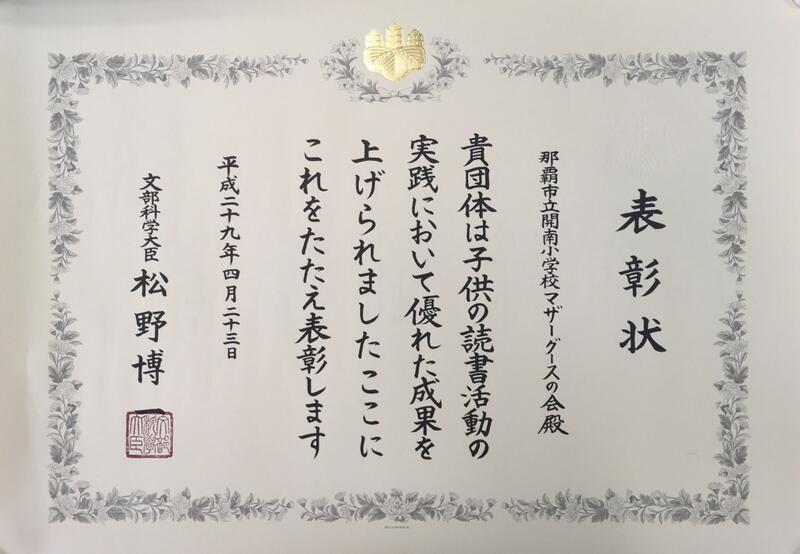 表彰状
那覇市立開南小学校マザーグースの会殿
貴団体は子供の読書活動の
実践において優れた成果を
上げられましたここに
これをたたえ表彰します
平成二十九年四月二十三日
文部科学大臣 松野博一